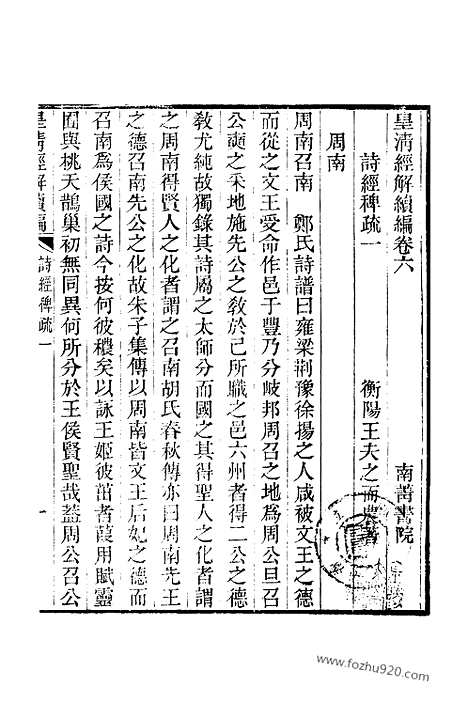 皇清經解續編卷六
南菁書院
詩經稗疏一
衡陽王夫之而農著
周南
周南召南 鄭氏詩譜曰雍梁荆豫徐揚之人咸被文王之德
而從之文王受命作邑于豐乃分岐邦周召之地爲周公旦召
公奭之采地施先公之敎於己所職之邑六州者得二公之德
敎尤純故獨錄其詩屬之太師分而國之其得聖人之化者謂
之周南得賢人之化者謂之召南胡氏春秋傳亦曰周南先王
之德召南先公之化故朱子集傳以周南皆文王后妃之德而
召南爲侯國之詩今按何彼穠矣以詠王姬彼茁者葭用賦靈
囿與桃夭鵲巢初無同異何所分於王侯賢聖哉蓋周公召公
皇清經解續編
詩經稗疏一
一
www.fozhu920.com